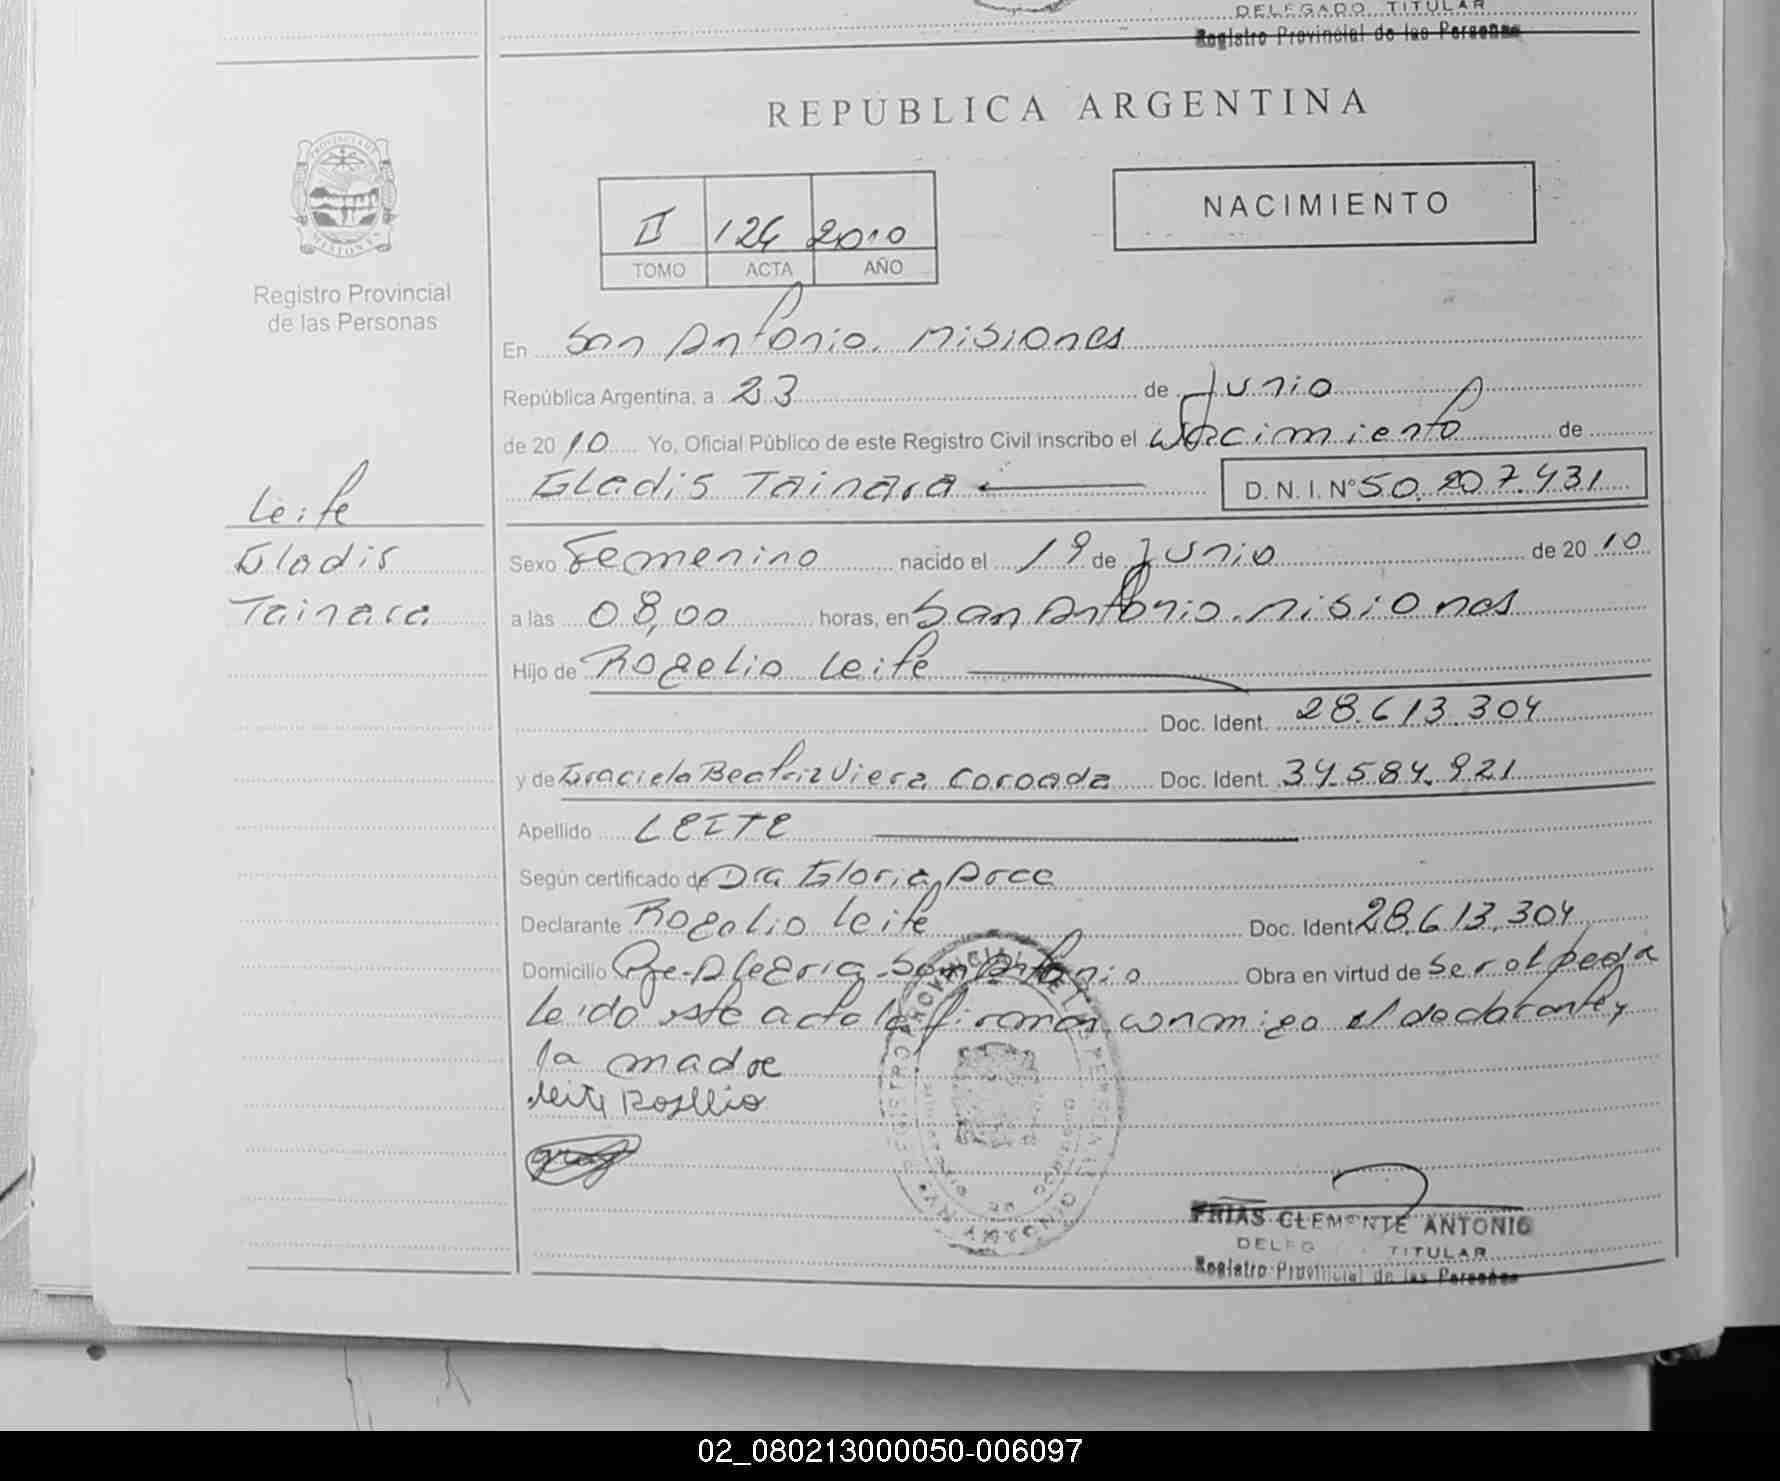 DELEGADO TITULAR
Registro Provincial de las Personas
REPUBLICA ARGENTINA
II 124 2010
TOMO ACTA AÑO
NACIMIENTO
PROVINCIA DE
MISIONES
Registro Provincial
de las Personas
En San Antonio. Misiones
República Argentina, a 23 de Junio
de 2010 Yo, Oficial Público de este Registro Civil inscribo el Nacimiento de
Gladis Tainara D. N. I. Nº 50.207.431
Leite
Gladis
Tainara
Sexo Femenino nacido el 19 de Junio de 2010
a las 08,00 horas, en San Antonio. Misiones
Hijo de Rogelio Leite
Doc. Ident. 28.613.304
y de Graciela Beatriz Viera Coroada Doc. Ident. 34.584.921
Apellido LEITE
Según certificado de Dra Gloria Arce
Declarante Rogelio Leite Doc. Ident 28.613.304
Domicilio Pje-Alegria-San Antonio Obra en virtud de Ser
Leido este acta la firman conmigo el declarante y
la madre
leite Rogelio
FRIAS CLEMENTE ANTONIO
DELEG TITULAR
Registro Provincial de las Personas
02_080213000050-006097